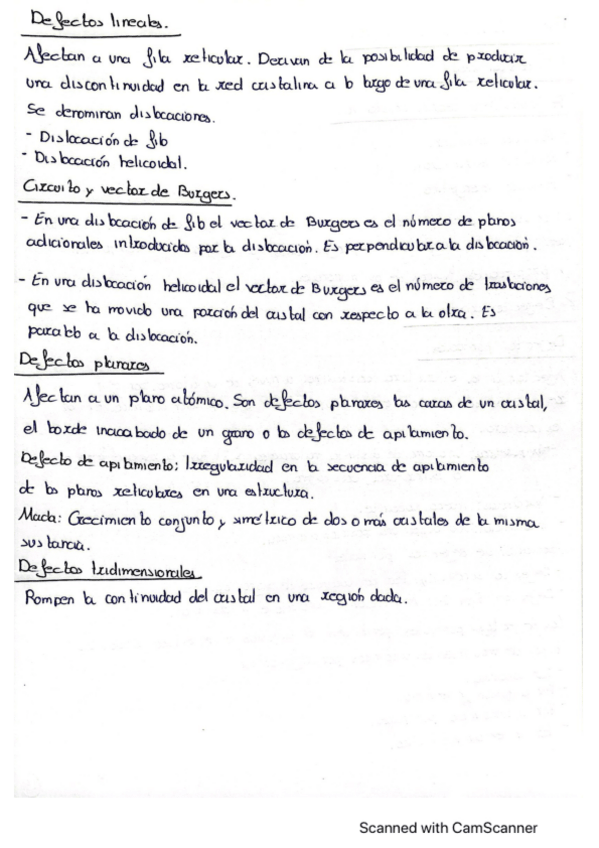 Defectos lineales.
Afectan a una fila reticular. Derivan de la posibilidad de producir
una discontinuidad en la red cristalina a lo largo de una fila reticular.
Se denominan dislocaciones.
- Dislocación de filo
- Dislocación helicoidal.
Circuito y vector de Burgers.
- En una dislocación de filo el vector de Burgers es el número de planos
adicionales introducidos por la dislocación. Es perpendicular a la dislocación.
- En una dislocación helicoidal el vector de Burgers es el número de traslaciones
que se ha movido una porción del cristal con respecto a la otra. Es
paralelo a la dislocación.
Defectos planares
Afectan a un plano atómico. Son defectos planares las caras de un cristal,
el borde inacabado de un grano o los defectos de apilamiento.
Defecto de apilamiento: Irregularidad en la secuencia de apilamiento
de los planos reticulares en una estructura.
Macla: Crecimiento conjunto y simétrico de dos o más cristales de la misma
sustancia.
Defectos tridimensionales
Rompen la continuidad del cristal en una región dada.
Scanned with CamScanner